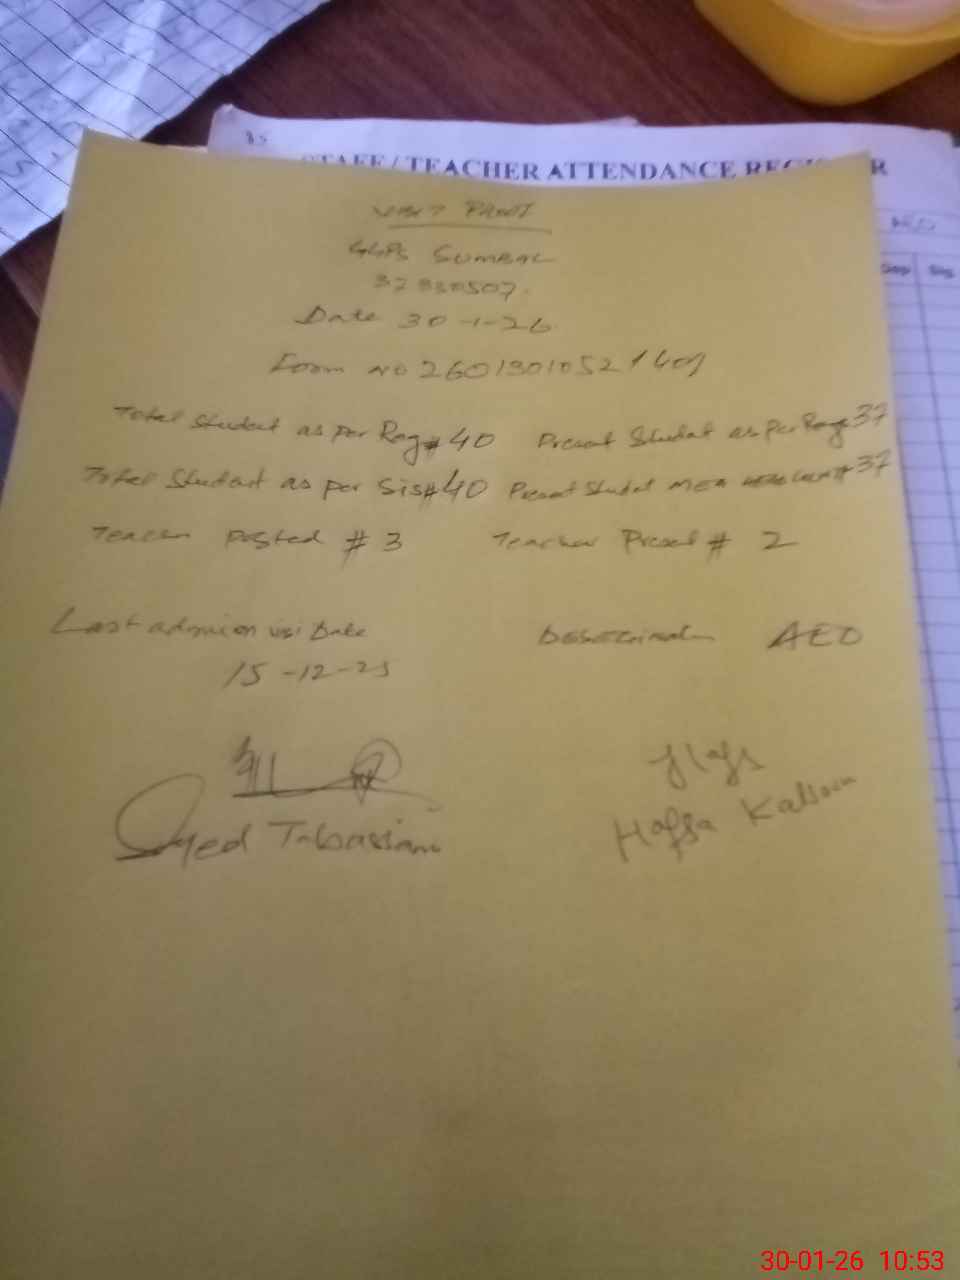 STAFF / TEACHER ATTENDANCE REGISTER
VISIT PROOF
GGPS SUMBAL
37330507
Date 30-1-26
Form no 26013010521409
Total Student as per Reg# 40 Present Student as per Reg# 37
Total Student as per Sis# 40 Present Student MEA Head Count# 37
Teacher Posted # 3 Teacher Present # 2
Last admin visi Date
15-12-25
AEO
Syed Tabassam
Hafsa Kalsoom
30-01-26 10:53